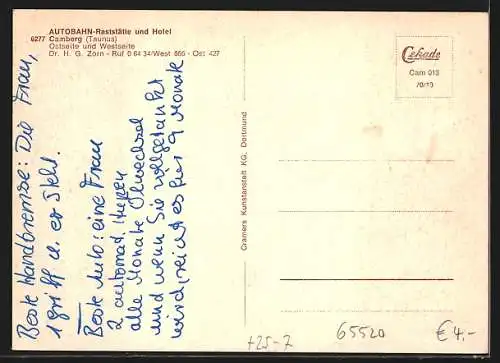 AUTOBAHN-Raststätte und Hotel
6277 Camberg (Taunus)
Ostseite und Westseite
Dr. H. G. Zorn - Ruf 0 64 34/West 866 - Ost 427
Beste Handbremse: Die Frau,
1 Griff u. er steht.
Beste Auto: eine Frau
2 automat. Hupen
alle Monate Ölwechsel
und wenn sie vollgetankt
wird, reicht es für 9 Monate
Cramers Kunstanstalt KG, Dortmund
Cekade
Cam 013
+25-7
65520
€ 4,-